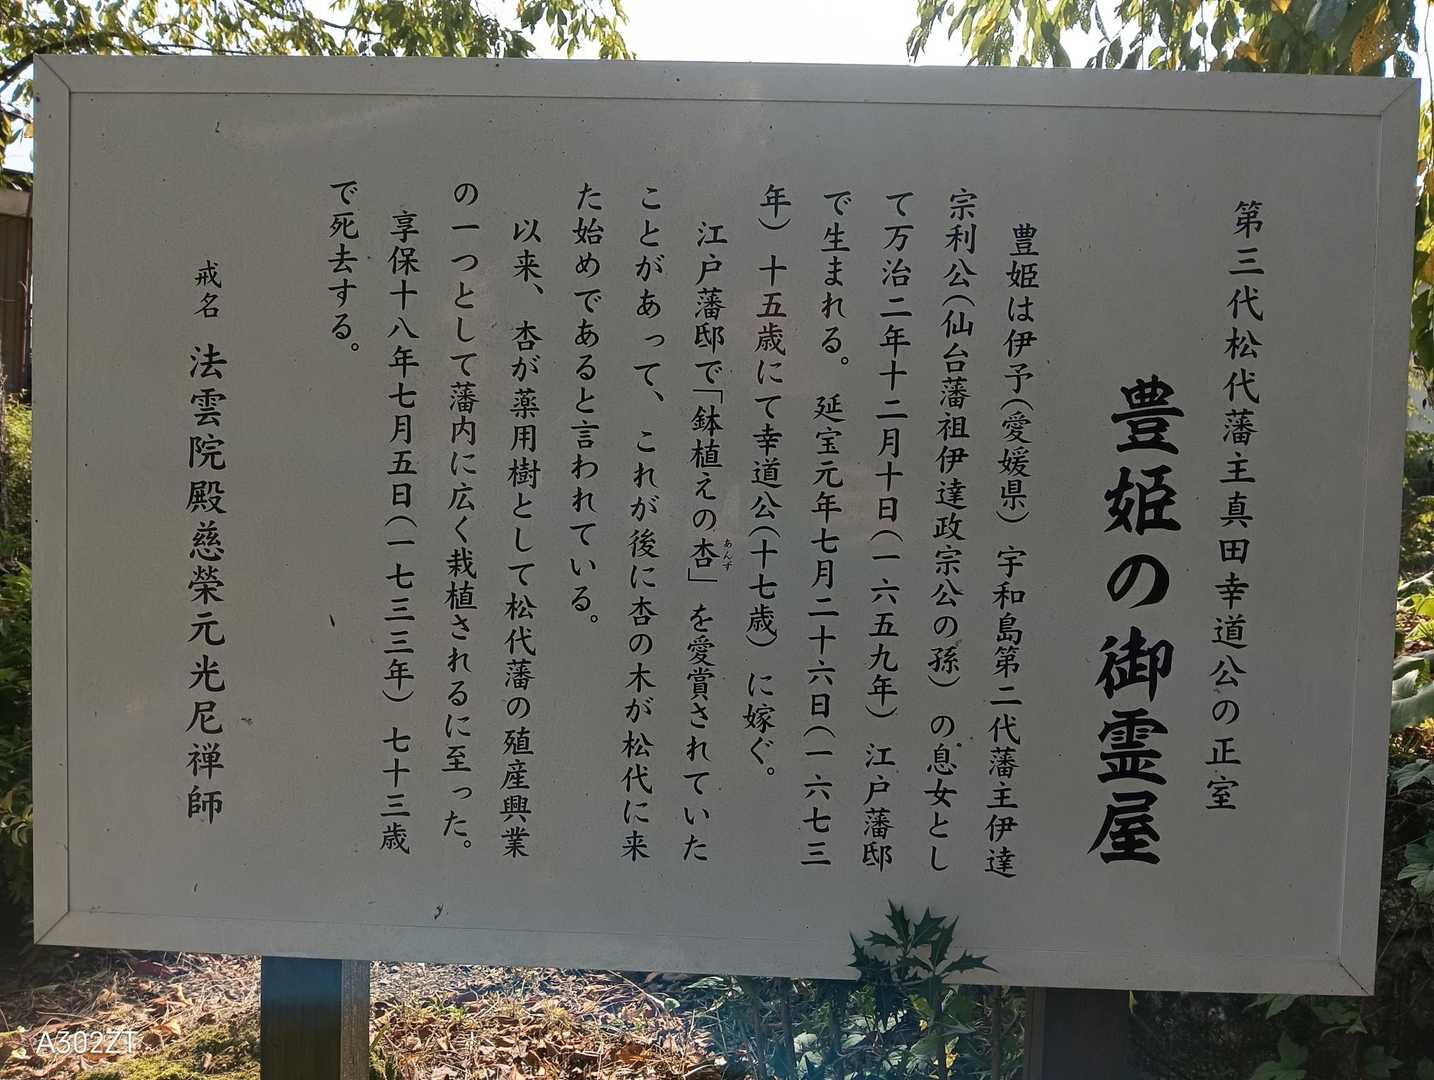 第三代松代藩主真田幸道公の正室
豊姫の御霊屋
豊姫は伊予(愛媛県)宇和島第二代藩主伊達
宗利公(仙台藩祖伊達政宗公の孫)の息女とし
て万治二年十二月十日(一六五九年)江戸藩邸
で生まれる。延宝元年七月二十六日(一六七三
年)十五歳にて幸道公(十七歳)に嫁ぐ。
江戸藩邸で「鉢植えの杏」を愛賞されていた
あんず
ことがあって、これが後に杏の木が松代に来
た始めであると言われている。
以来、杏が薬用樹として松代藩の殖産興業
の一つとして藩内に広く栽植されるに至った。
享保十八年七月五日(一七三三年)七十三歳
で死去する。
戒名 法雲院殿慈榮元光尼禅師
A302ZT